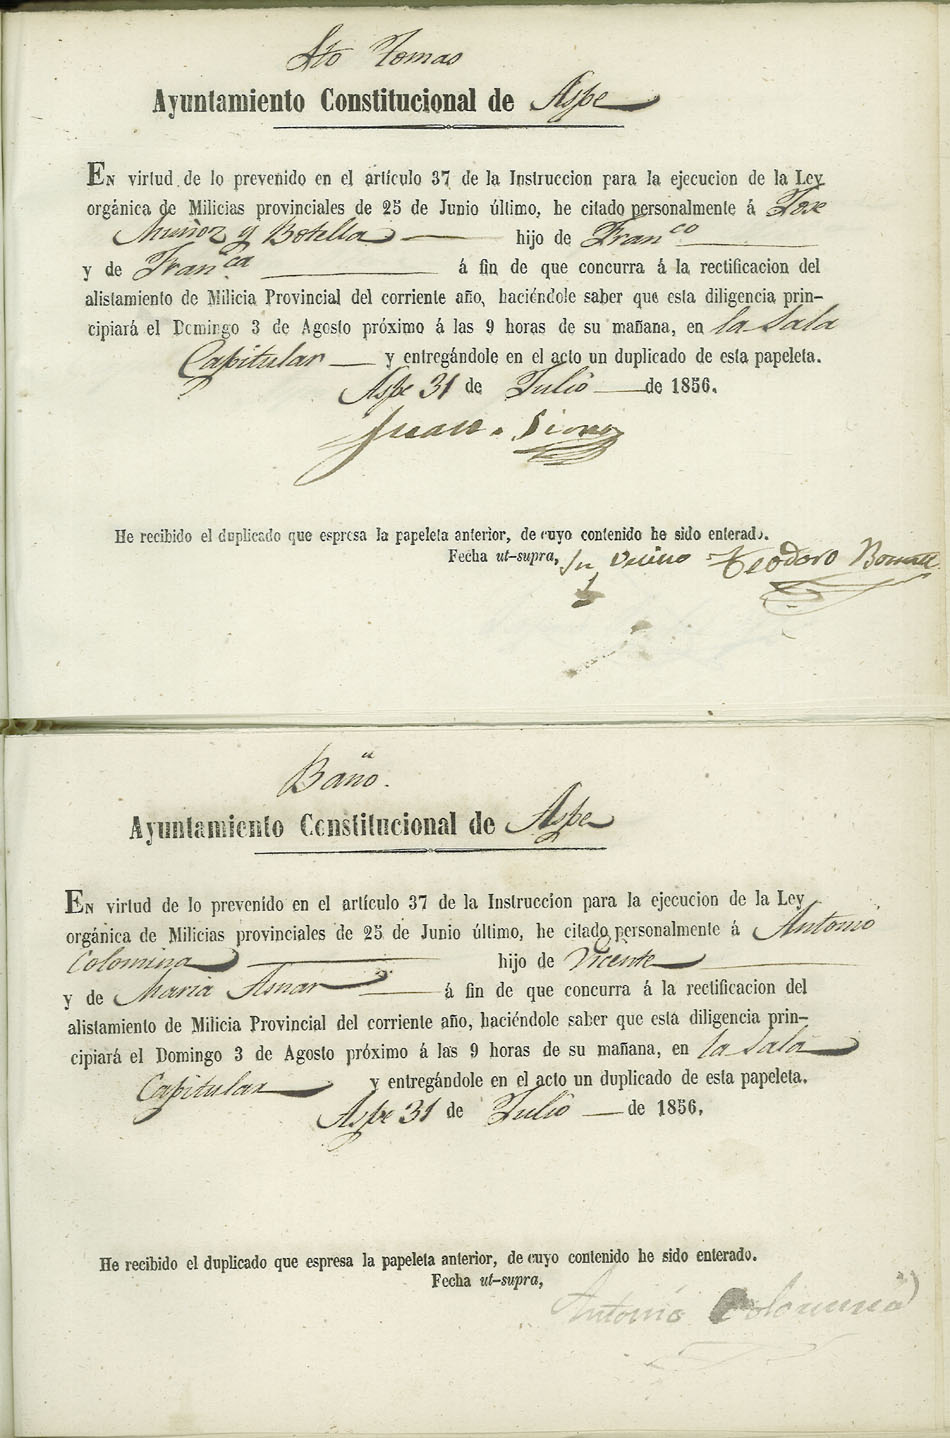 Sto Tomas
Ayuntamiento Constitucional de Aspe
En virtud de lo prevenido en el artículo 37 de la Instruccion para la ejecucion de la Ley
orgánica de Milicias provinciales de 25 de Junio último, he citado personalmente á Jose
Muñoz y Botella hijo de Franco
y de Franca á fin de que concurra á la rectificacion del
alistamiento de Milicia Provincial del corriente año, haciéndole saber que esta diligencia prin-
cipiará el Domingo 3 de Agosto próximo á las 9 horas de su mañana, en la Sala
Capitular y entregándole en el acto un duplicado de esta papeleta.
Aspe 31 de Julio de 1856.
Juan
He recibido el duplicado que espresa la papeleta anterior, de cuyo contenido he sido enterado.
Fecha ut-supra, Su vecino Teodoro
Baño.
Ayuntamiento Constitucional de Aspe
En virtud de lo prevenido en el artículo 37 de la Instruccion para la ejecucion de la Ley
orgánica de Milicias provinciales de 25 de Junio último, he citado personalmente á Antonio
Colomina hijo de Vicente
y de Maria Asnar á fin de que concurra á la rectificacion del
alistamiento de Milicia Provincial del corriente año, haciéndole saber que esta diligencia prin-
cipiará el Domingo 3 de Agosto próximo á las 9 horas de su mañana, en la Sala
Capitular y entregándole en el acto un duplicado de esta papeleta.
Aspe 31 de Julio de 1856.
He recibido el duplicado que espresa la papeleta anterior, de cuyo contenido he sido enterado.
Fecha ut-supra,
Antonio Colomina